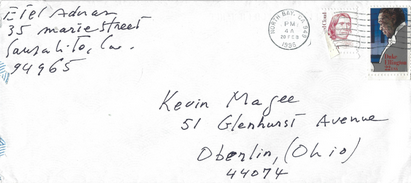 Etel Adnan
35 marie street
Sausalito, Ca.
94965
NORTH BAY, CA 949
PM
1986
Kevin Magee
51 Glenhurst Avenue
Oberlin, (Ohio)
44074